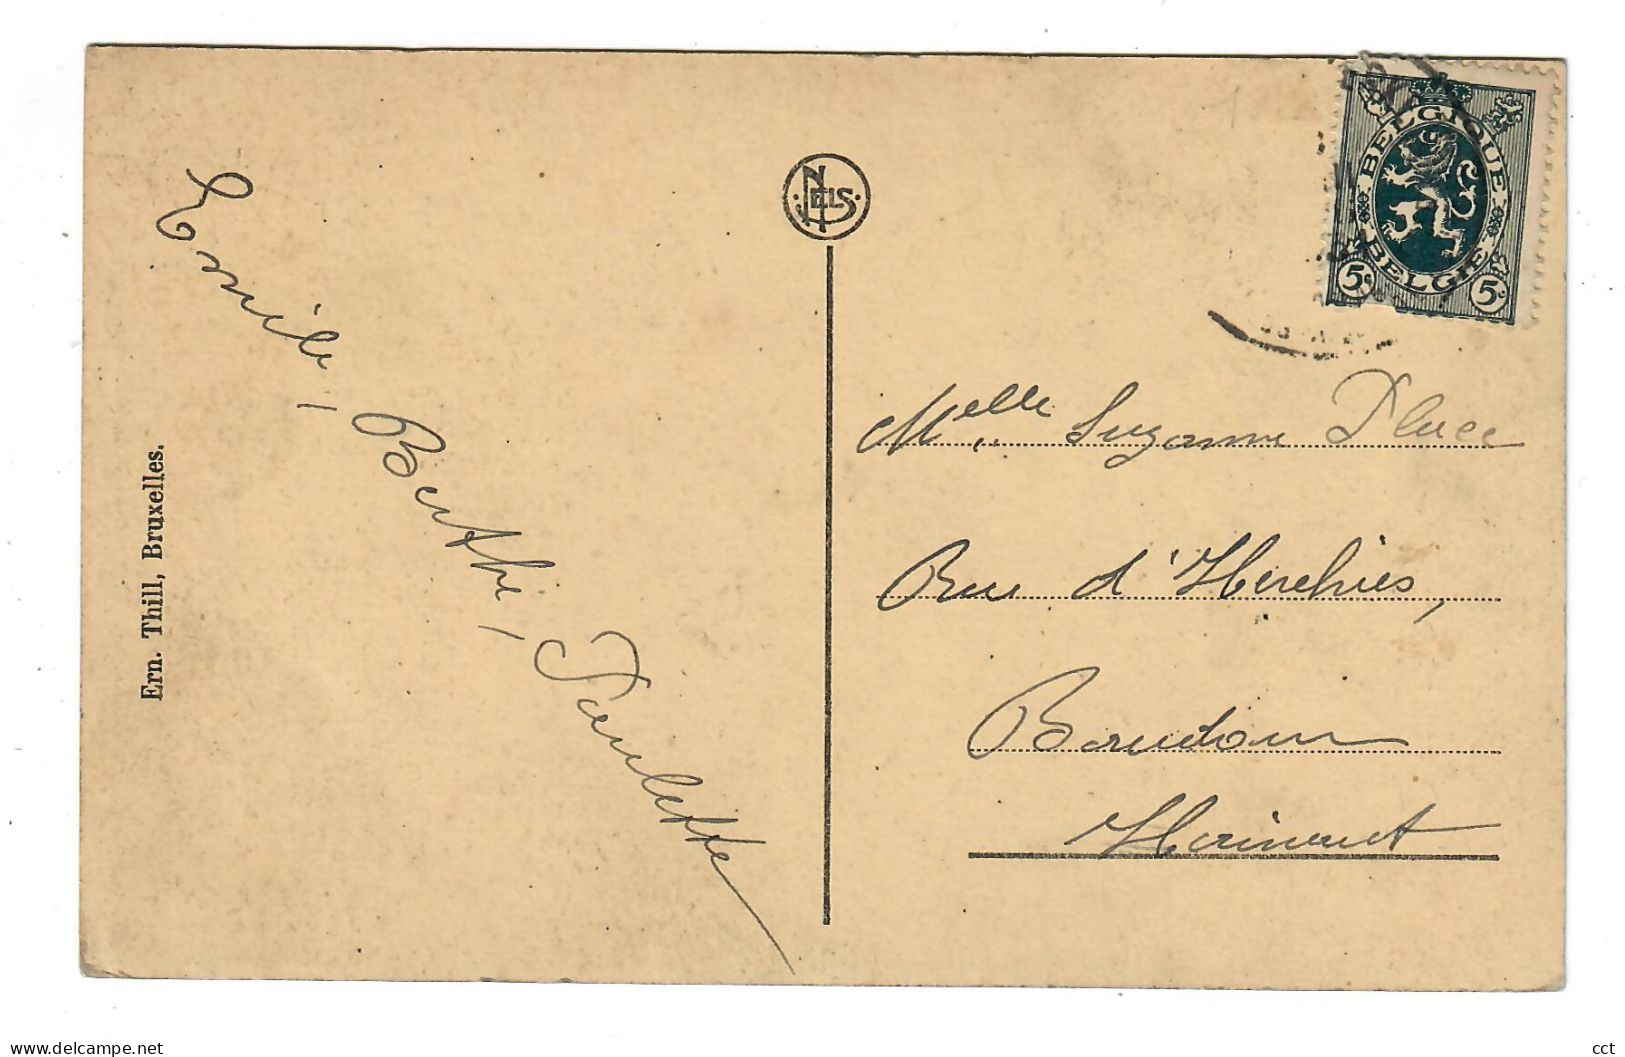 Emile, Berthe, Paulette
Ern. Thill, Bruxelles.
NELS
BELGIQUE
BELGIË
5c 5c
Melle Suzanne Place
Rue d'Herchies,
Baudour
Hainaut
delcampe.net
cct